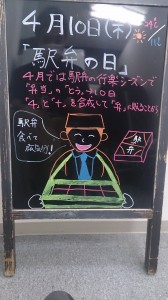 4月10日(木)
「駅弁の日」
4月では駅弁の行楽シーズンで
「弁当」の「とう」→10日
「4」と「十」を合成して「弁」に見えることから
駅弁
食べて
弁